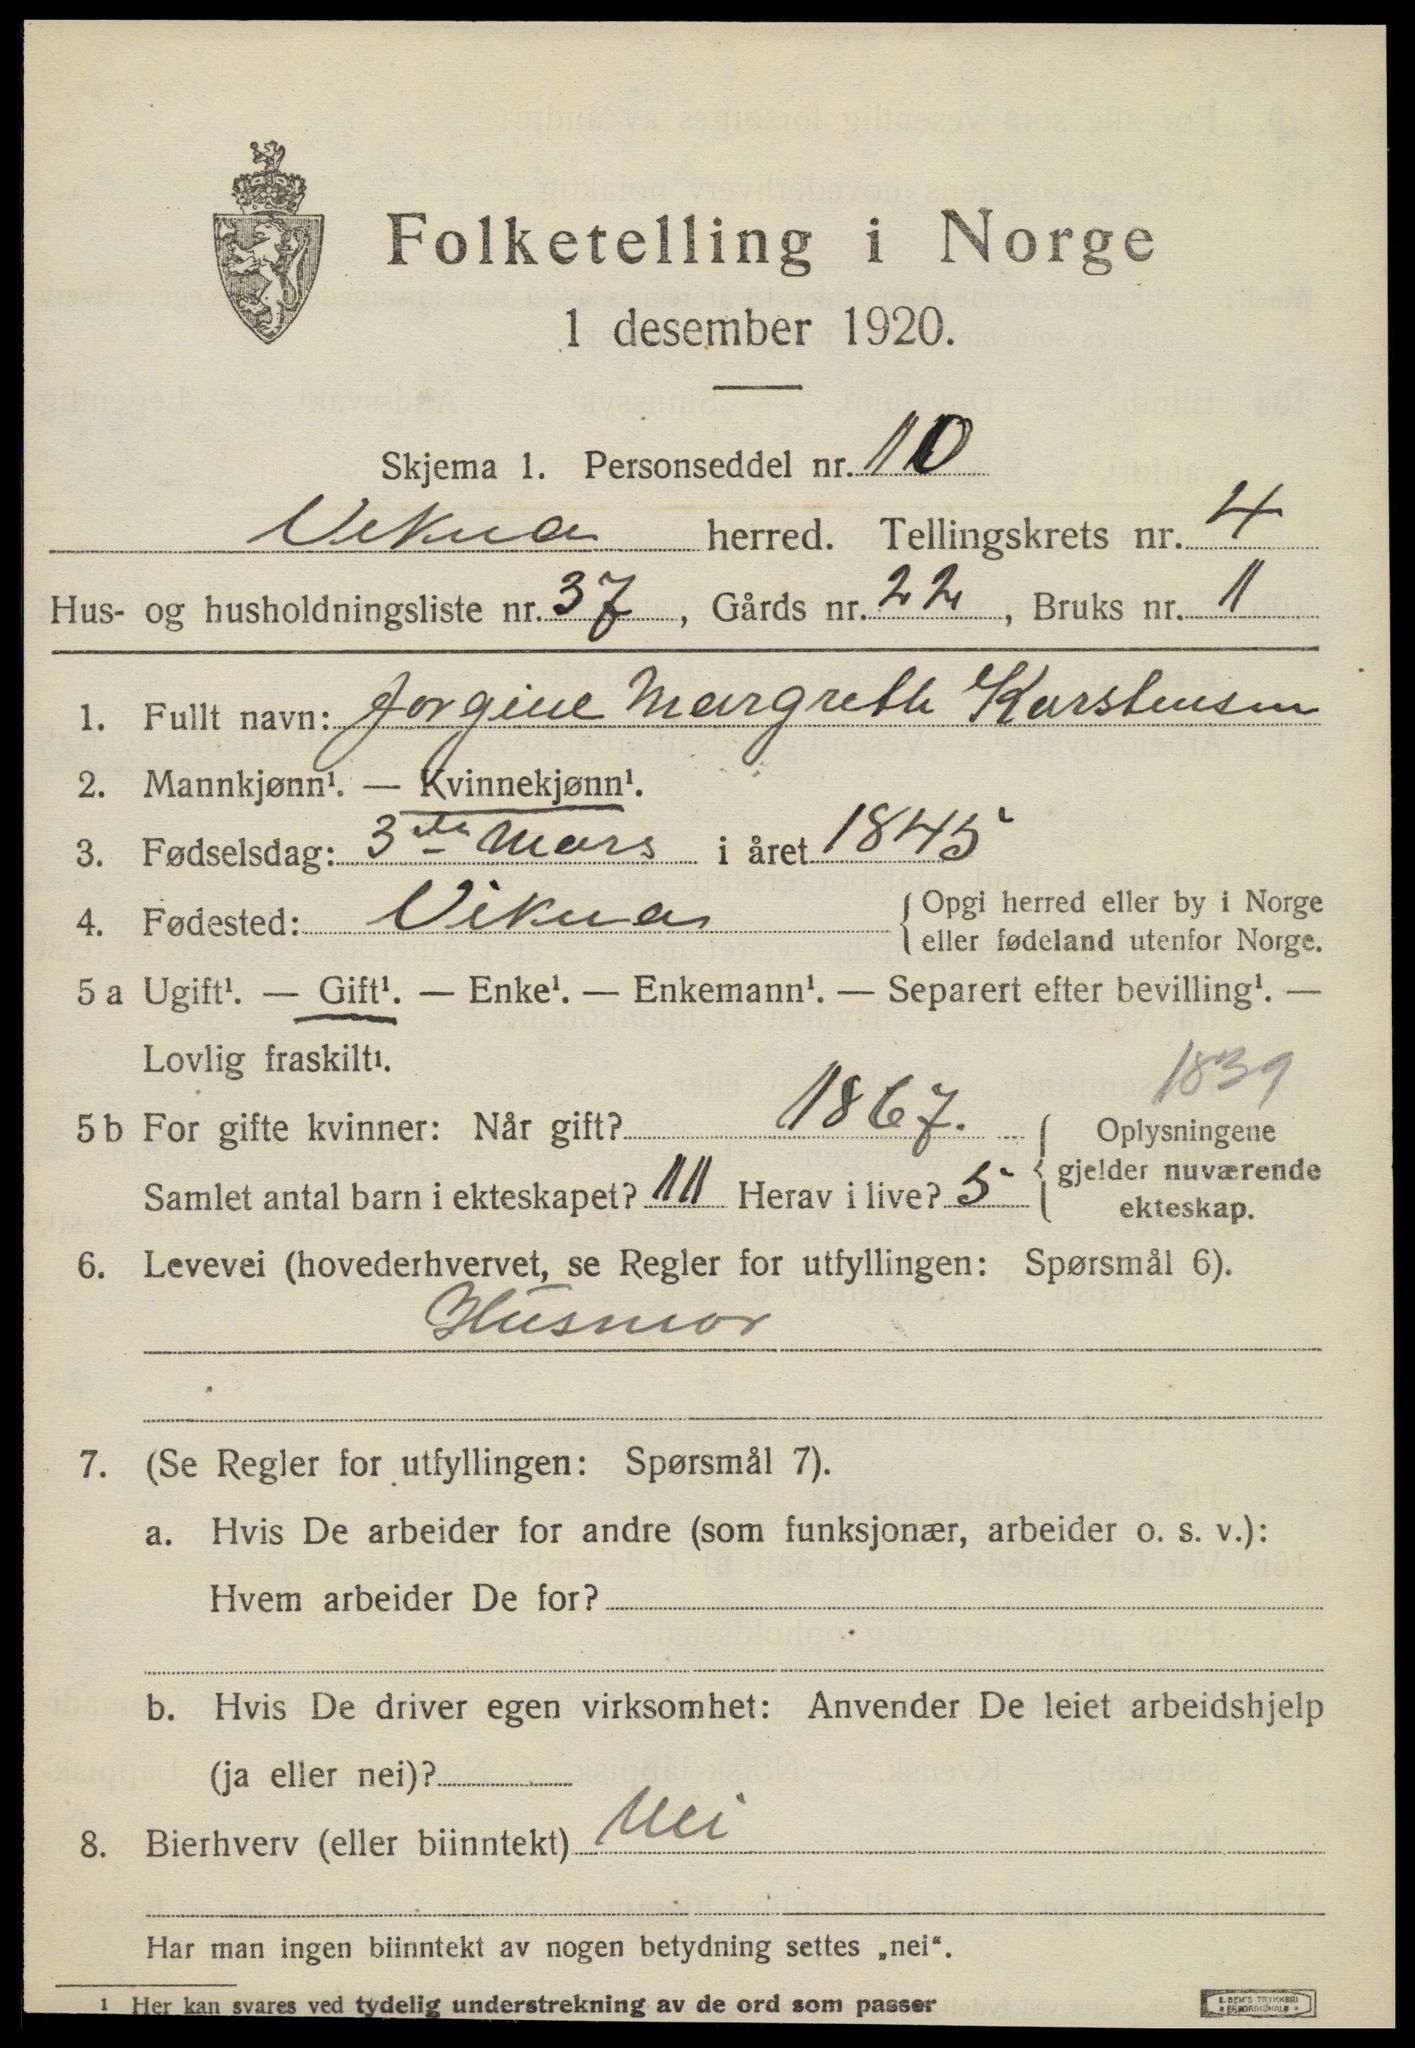 Folketelling i Norge
1 desember 1920.
Skjema 1. Personseddel nr. 10
Vikna herred. Tellingskrets nr. 4
Hus- og husholdningsliste nr. 37, Gårds nr. 22, Bruks nr. 1
1. Fullt navn: Jorgine Margreth Karstensen
2. Mannkjønn¹. — Kvinnekjønn¹.
3. Fødselsdag: 3die Mars i året 1845
4. Fødested: Vikna { Opgi herred eller by i Norge
eller fødeland utenfor Norge.
5 a Ugift¹. — Gift¹. — Enke¹. — Enkemann¹. — Separert efter bevilling¹. —
Lovlig fraskilt¹.
1839
5 b For gifte kvinner: Når gift? 1867. { Oplysningene
gjelder nuværende
Samlet antal barn i ekteskapet? 11 Herav i live? 5
ekteskap.
6. Levevei (hovederhvervet, se Regler for utfyllingen: Spørsmål 6).
Husmor
7. (Se Regler for utfyllingen: Spørsmål 7).
a. Hvis De arbeider for andre (som funksjonær, arbeider o. s. v.):
Hvem arbeider De for?
b. Hvis De driver egen virksomhet: Anvender De leiet arbeidshjelp
(ja eller nei)?
8. Bierhverv (eller biinntekt) Nei
Har man ingen biinntekt av nogen betydning settes „nei“.
¹ Her kan svares ved tydelig understrekning av de ord som passer